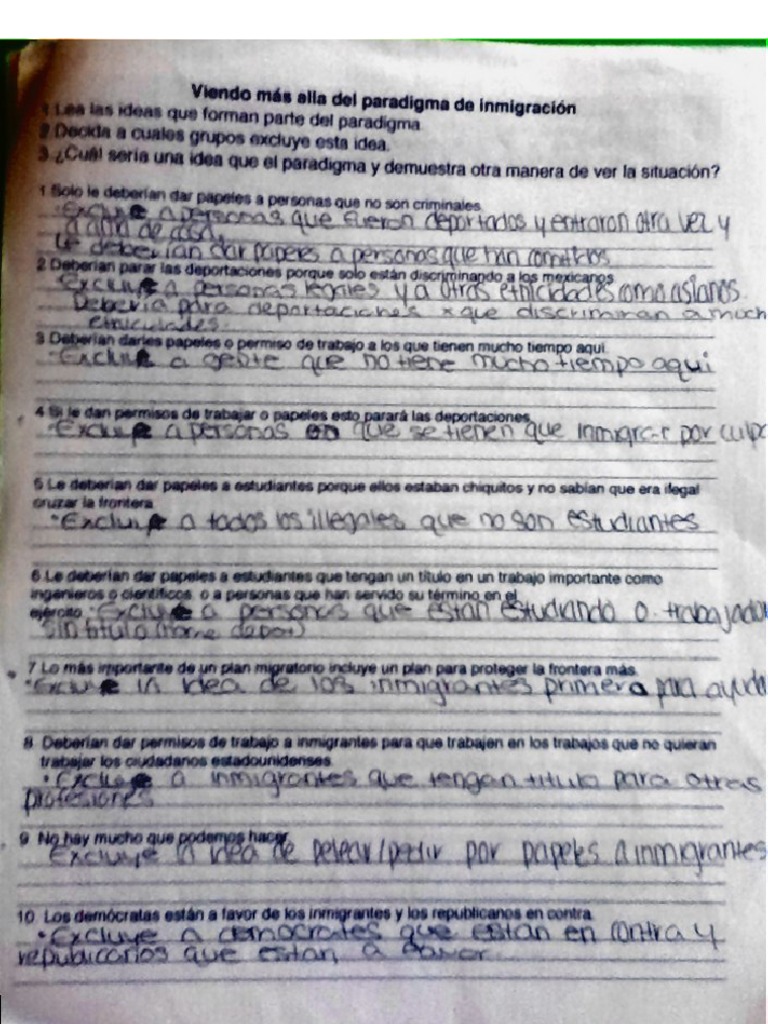 Viendo más alla del paradigma de inmigración
1. Lea las ideas que forman parte del paradigma
2. Decida a cuales grupos excluye esta idea.
3. ¿Cuál seria una idea que el paradigma y demuestra otra manera de ver la situación?
1 Solo le deberian dar papeles a personas que no son criminales
·Excluye a personas que fueron deportados y entraron otra vez y
le deberian dar papeles a personas que han
2 Deberian parar las deportaciones porque solo están discriminando a los mexicanos
·Excluye a personas legales y a otras etnicidades como asianos.
Deberia para deportaciones x que discriminan a much
etnicidades.
3 Deberian darles papeles o permiso de trabajo a los que tienen mucho tiempo aqui.
·Excluye a gente que no tiene mucho tiempo aqui
4 Si le dan permisos de trabajar o papeles esto parará las deportaciones
·Excluye a personas que se tienen que inmigrar por culpa
5 Le deberian dar papeles a estudiantes porque ellos estaban chiquitos y no sabian que era ilegal
cruzar la frontera
·Excluye a todos los illegales que no son estudiantes
6 Le deberian dar papeles a estudiantes que tengan un titulo en un trabajo importante como
ingenieros o cientificos o a personas que han servido su término en el
ejército ·Excluye a personas que estan estudiando o trabajado
sin titulo (home depot)
7 Lo más importante de un plan migratorio incluye un plan para proteger la frontera más.
·Excluye la idea de los inmigrantes primero para ayuda
8 Deberian dar permisos de trabajo a inmigrantes para que trabajen en los trabajos que no quieran
trabajar los ciudadanos estadounidenses
·Excluye a inmigrantes que tengan titulo para otras
profesiones
9 No hay mucho que podemos hacer
Excluye la idea de pelear/pedir por papeles a inmigrantes
10. Los demócratas están a favor de los inmigrantes y los republicanos en contra
·Excluye a democrates que estan en contra y
republicanos que estan a favor.